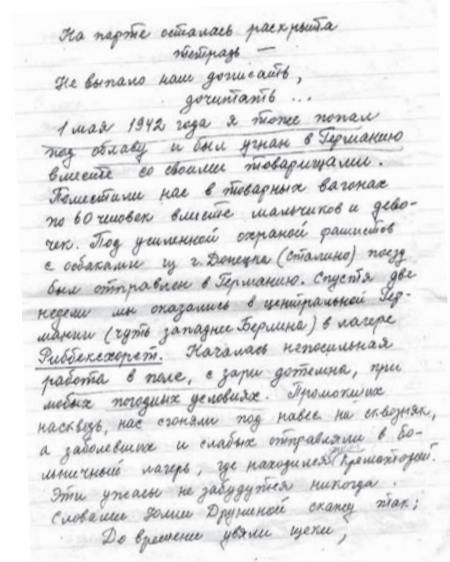 На парте осталась раскрыта
тетрадь —
Не выпало нам дописать,
дочитать ...
1 мая 1942 года я тоже попал
под облаву и был угнан в Германию
вместе со своими товарищами.
Поместили нас в товарных вагонах
по 60 человек вместе мальчиков и дево-
чек. Под усиленной охраной фашистов
с собаками из г. Донецка (Сталино) поезд
был отправлен в Германию. Спустя две
недели мы оказались в центральной Гер-
мании (чуть западнее Берлина) в лагере
Риббексхорст. Началась непосильная
работа в поле, с зари дотемна, при
любых погодных условиях. Промокших
насквозь, нас сгоняли под навес на сквозняк,
а заболевших и слабых отправляли в бо-
льничный лагерь, где находился крематорий.
Эти ужасы не забудутся никогда.
Словами Юлии Друниной скажу так:
До времени увяли щеки,